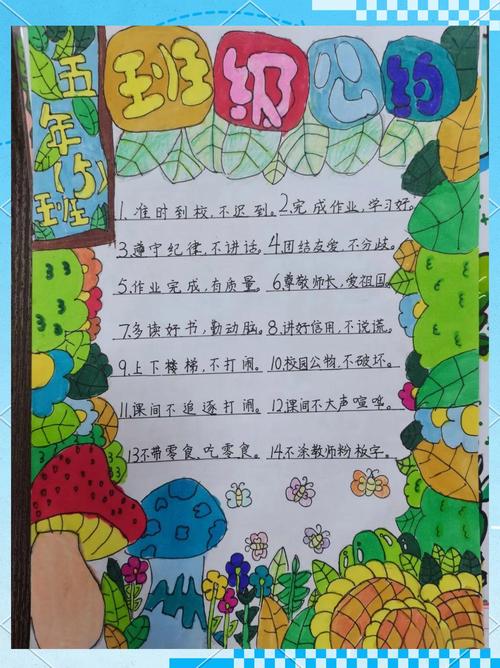 班级公约
五年(5)班
1.准时到校，不迟到。2.完成作业，学习好。
3.遵守纪律，不讲话。4.团结友爱，不分歧。
5.作业完成，有质量。6.尊敬师长，爱祖国。
7.多读好书，勤动脑。8.讲好信用，不说谎。
9.上下楼梯，不打闹。10.校园公物，不破坏。
11.课间不追逐打闹。12.课间不大声喧哗。
13.不带零食、吃零食。14.不涂教师粉板字。